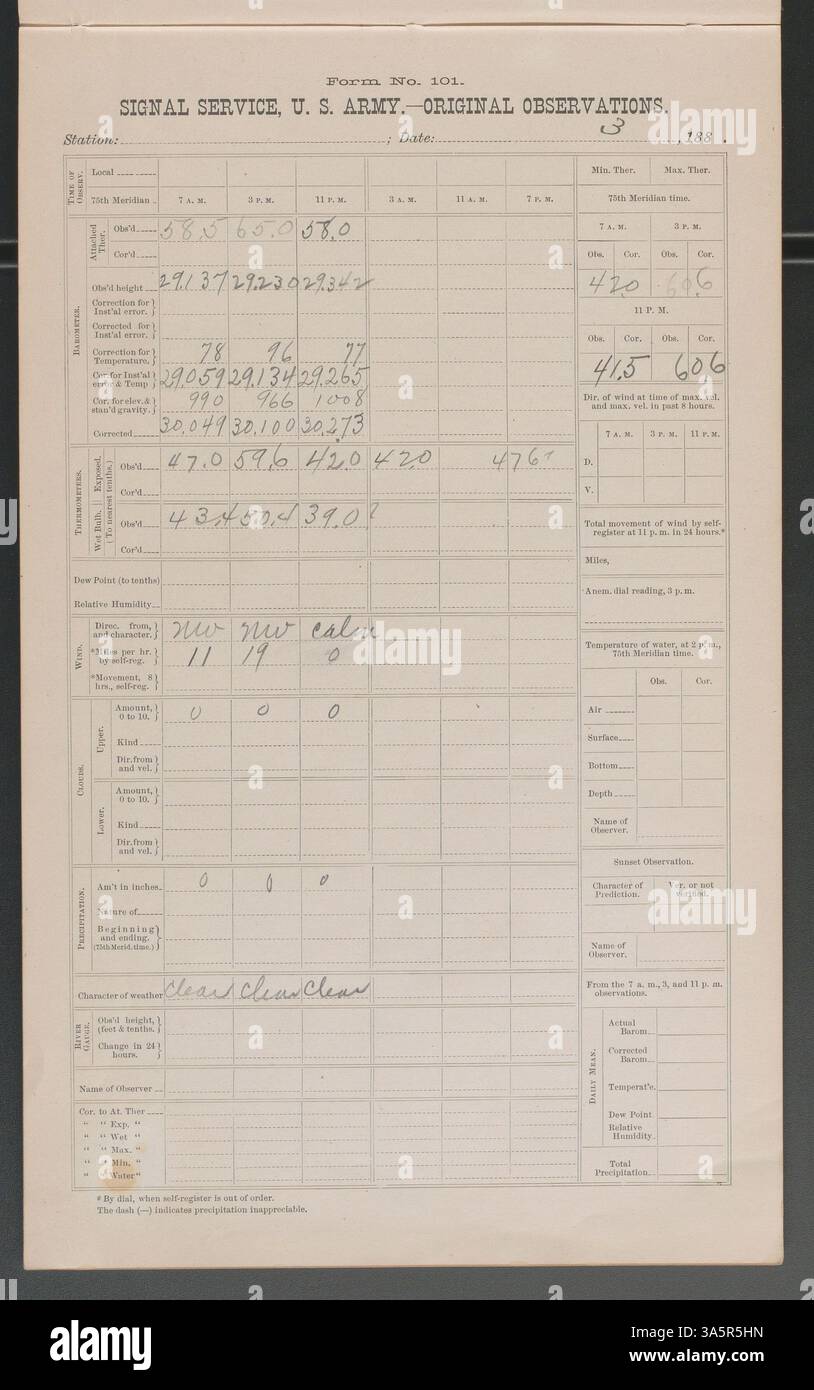 Form No. 101.
SIGNAL SERVICE, U. S. ARMY.—ORIGINAL OBSERVATIONS.
Station: ; Date: 3 , 188 .
TIME OF OBSERV.
Local
75th Meridian 7 A. M. 3 P. M. 11 P. M. 3 A. M. 11 A. M. 7 P. M.
BAROMETER.
Attached Ther.
Obs'd 58.5 65.0 58.0
Cor'd
Obs'd height 29.137 29.230 29.342
Correction for Inst'al error.
Corrected for Inst'al error.
Correction for Temperature. 78 96 77
Cor. for Inst'al error & Temp 29.059 29.134 29.265
Cor. for elev. & stan'd gravity. 990 966 1008
Corrected 30.049 30.100 30.273
THERMOMETERS.
(To nearest tenths.)
Exposed.
Obs'd 47.0 59.6 42.0 42.0 47.6?
Cor'd
Wet Bulb.
Obs'd 43.4 50.4 39.0?
Cor'd
Dew Point (to tenths)
Relative Humidity
WIND.
Direc. from, and character. NW NW calm
*Miles per hr. by self-reg. 11 19 0
*Movement, 8 hrs., self-reg.
CLOUDS.
Upper.
Amount, 0 to 10. 0 0 0
Kind
Dir. from and vel.
Lower.
Amount, 0 to 10.
Kind
Dir. from and vel.
PRECIPITATION.
Am't in inches 0 0 0
Nature of
Beginning and ending. (75th Merid. time.)
Character of weather Clear Clear Clear
RIVER GAUGE.
Obs'd height, (feet & tenths.)
Change in 24 hours.
Name of Observer
Cor. to At. Ther
" " Exp. "
" " Wet "
" " Max. "
" " Min. "
" " Water "
* By dial, when self-register is out of order.
The dash (—) indicates precipitation inappreciable.
Min. Ther. Max. Ther.
75th Meridian time.
7 A. M. 3 P. M.
Obs. Cor. Obs. Cor.
42.0 60.6
11 P. M.
Obs. Cor. Obs. Cor.
41.5 60.6
Dir. of wind at time of max. vel. and max. vel. in past 8 hours.
7 A. M. 3 P. M. 11 P. M.
D.
V.
Total movement of wind by self-register at 11 p. m. in 24 hours.*
Miles,
Anem. dial reading, 3 p. m.
Temperature of water, at 2 p. m., 75th Meridian time.
Obs. Cor.
Air
Surface
Bottom
Depth
Name of Observer.
Sunset Observation.
Character of Prediction. Ver. or not verified.
Name of Observer.
From the 7 a. m., 3, and 11 p. m. observations.
DAILY MEAN.
Actual Barom.
Corrected Barom.
Temperat'e.
Dew Point
Relative Humidity.
Total Precipitation.
alamy
Image ID: 3A5R5HN
www.alamy.com